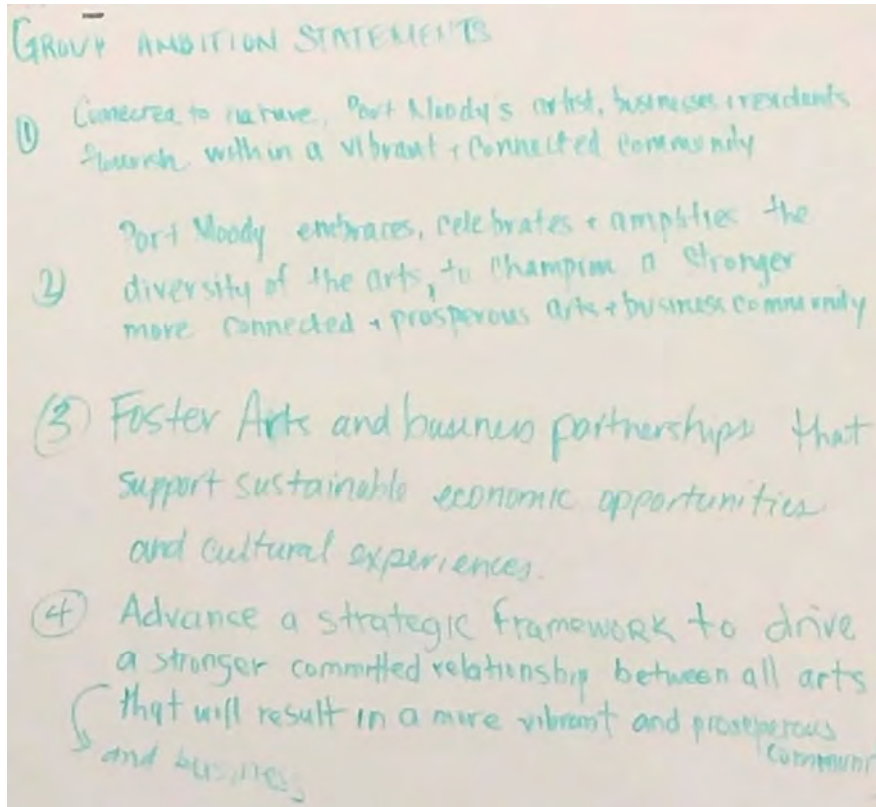 GROUP AMBITION STATEMENTS
① Connected to nature, Port Moody's artist, businesses + residents
flourish within a vibrant + connected community
Port Moody embraces, celebrates + amplifies the
② diversity of the arts, to champion a stronger
more connected + prosperous arts + business community
③ Foster Arts and business partnerships that
support sustainable economic opportunities
and cultural experiences.
④ Advance a strategic framework to drive
a stronger committed relationship between all arts
that will result in a more vibrant and prosperous
communi
and business